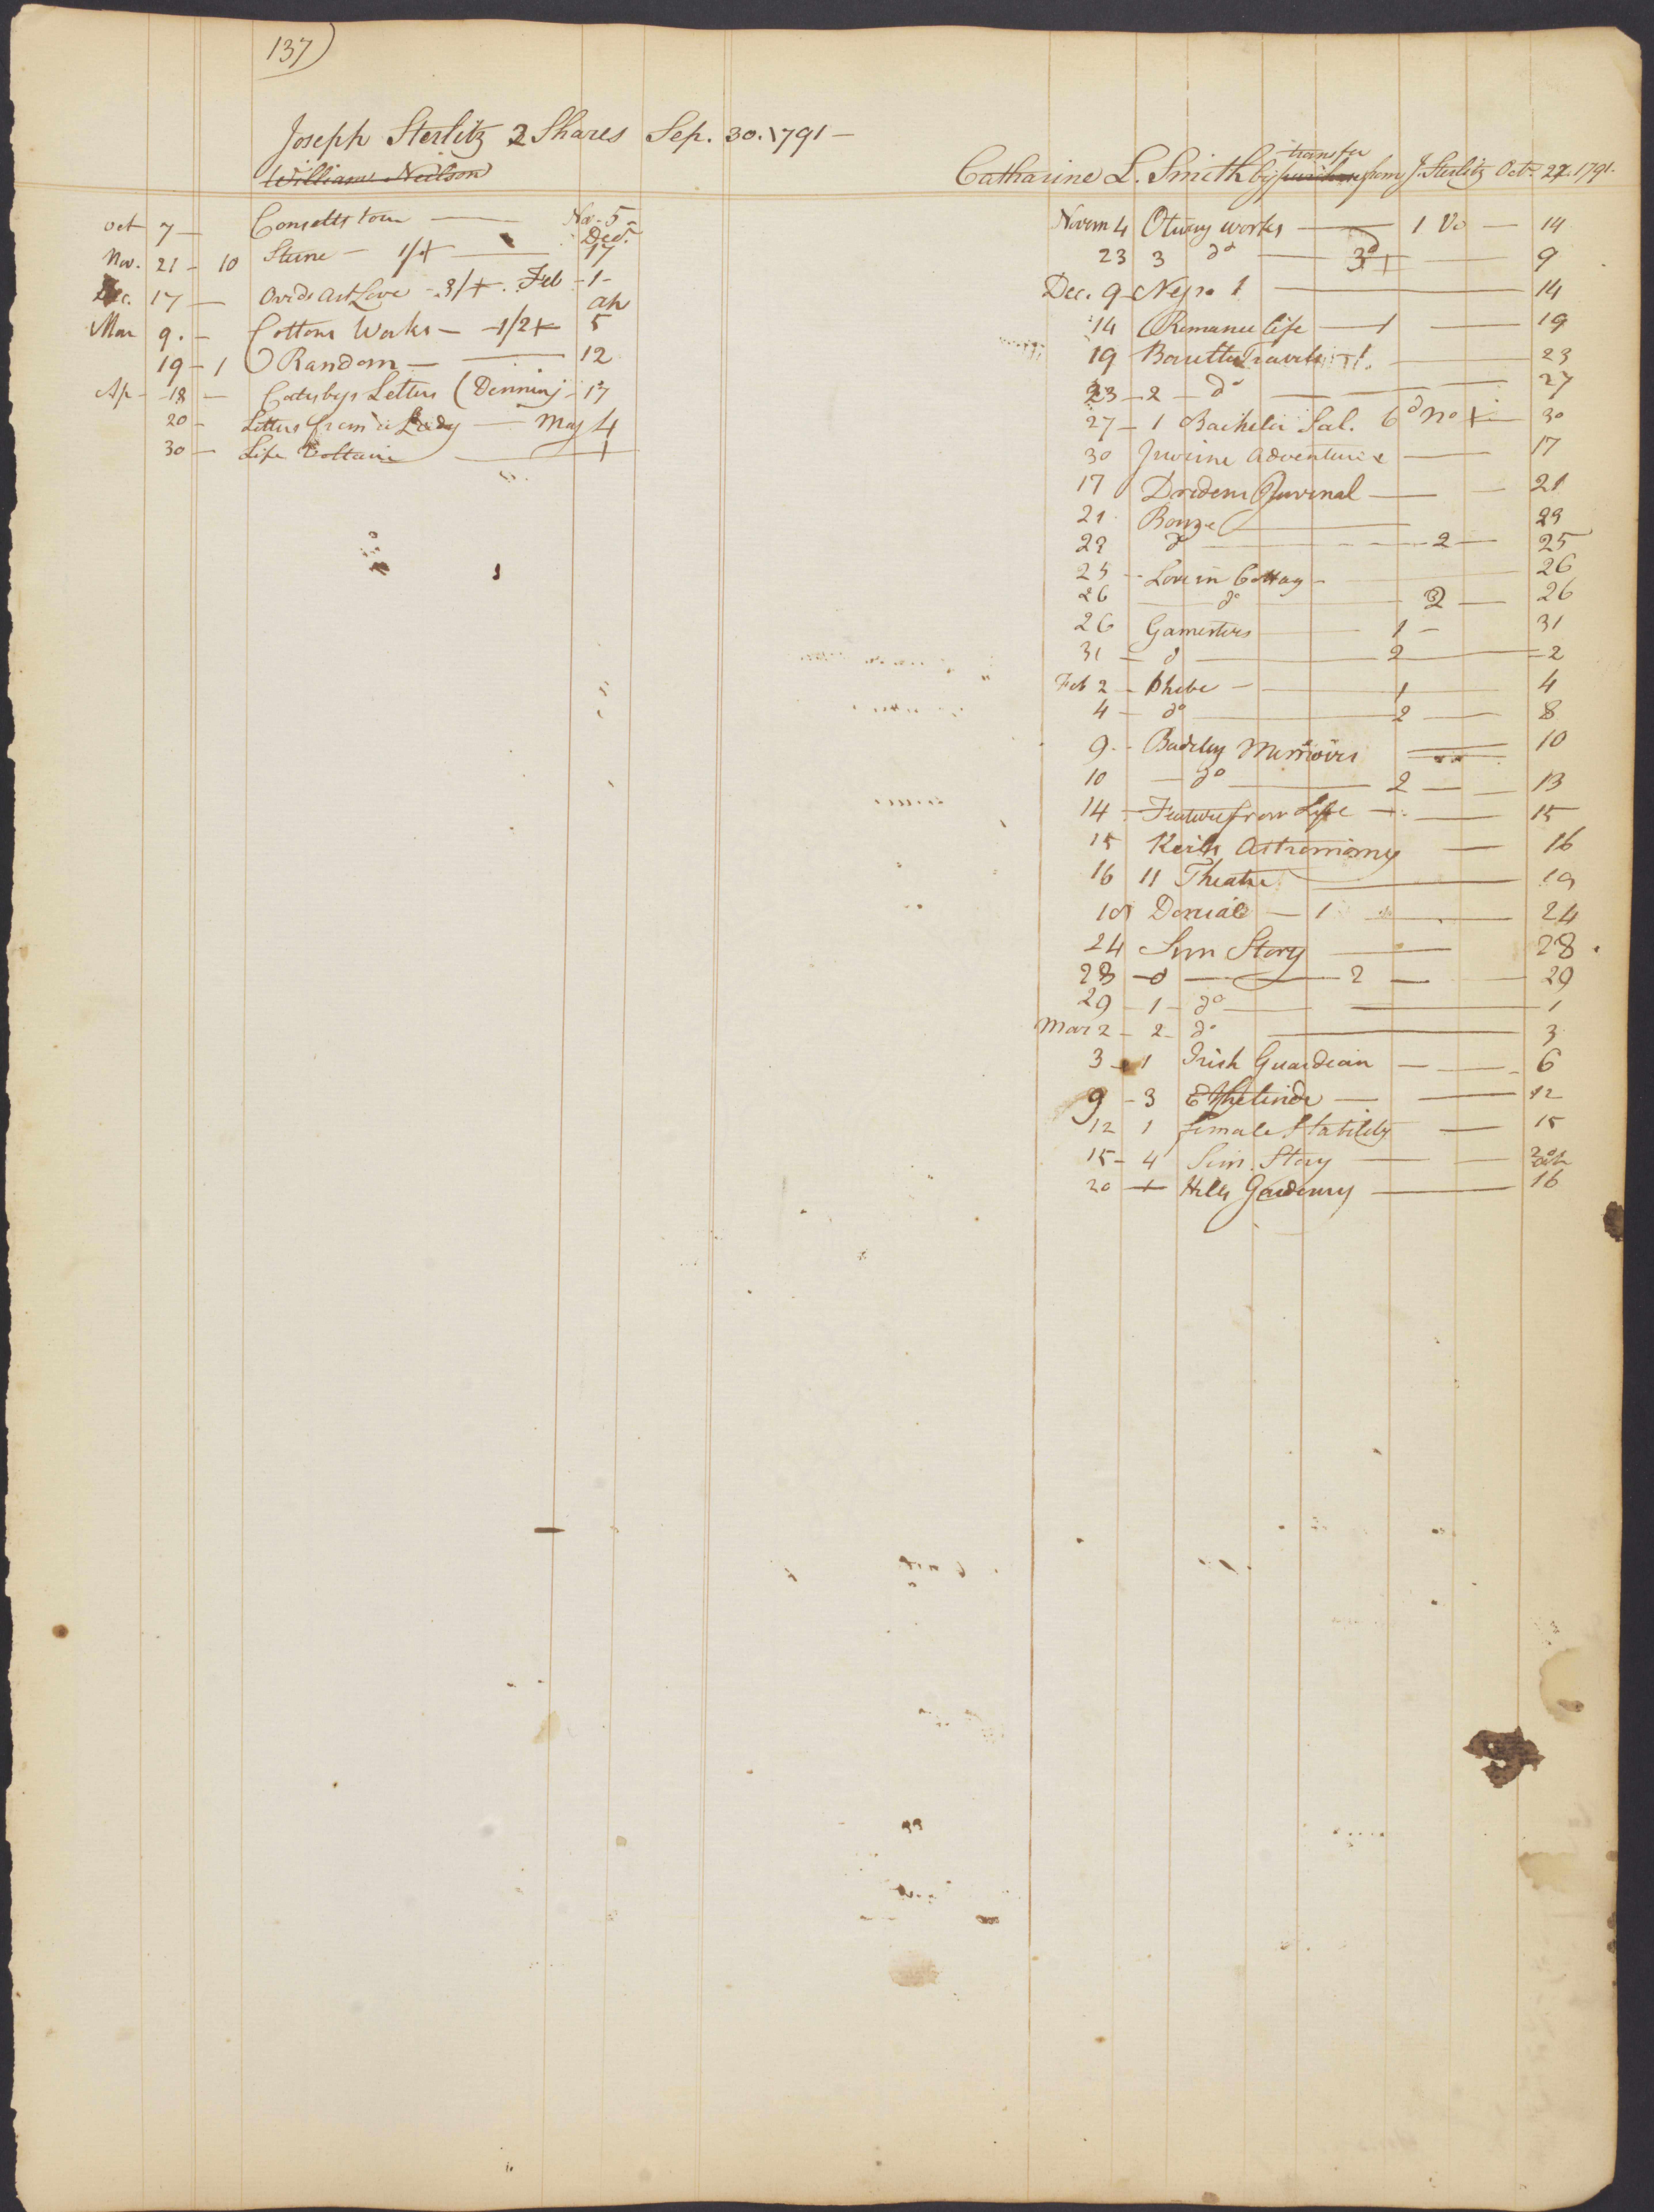 137)
Joseph Sterlitz 2 Shares Sep. 30. 1791 —
William Neilson
oct 7 — Consetts tour — Nov. 5 —
Nov. 21 — 10 Sterne — 1/+ — Dec. 17
Dec. 17 — Ovids Art Love — 3/+ . Feb — 1 —
Mar 9. — Cottons Works — 1/2+ ap 5
19 — 1 R Random — 12
Ap — 18 — Catesbys Letters (Denning — 17
20 — Letters from a Lady — May 4
30 — Life Voltaire — +
Catharine L. Smith by transfer from J. Sterlitz Octr 27. 1791.
Novem 4 Otway works — 1 Vo — 14
23 3 do — 3d + — 9
Dec. 9 — Negro 1 — 14
14 Romance life — 1 — 19
19 Baretti Travels — 1. — 23
23 — 2 — do — 27
27 — 1 Bachelor Sal. 6d no + — 30
30 Juvenile Adventures — 17
17 Drydens Juvenal — 21
21 Bonze — 23
23 do — 2 — 25
25 — Love in Cottag — 26
26 do — 2 — 26
26 Gamesters — 1 — 31
31 — do — 2 — 2
Feb 2 — Phebe — 1 — 4
4 — do — 2 — 8
9 — Badeley Memoirs — 10
10 — do — 2 — 13
14 — Features from Life — 15
15 Keils Astronomy — 16
16 11 Theatre — 19
19 Denial — 1 — 24
24 Sim Story — 28
28 — d — 2 — 29
29 — 1 — do — 1
Mar 2 — 2 — do — 3
3 — 1 Irish Guardian — 6
9 — 3 Ethelinde — 12
12 1 female Stability — 15
15 — 4 Sim. Story — 20
20 — + Hills Gardening — 16